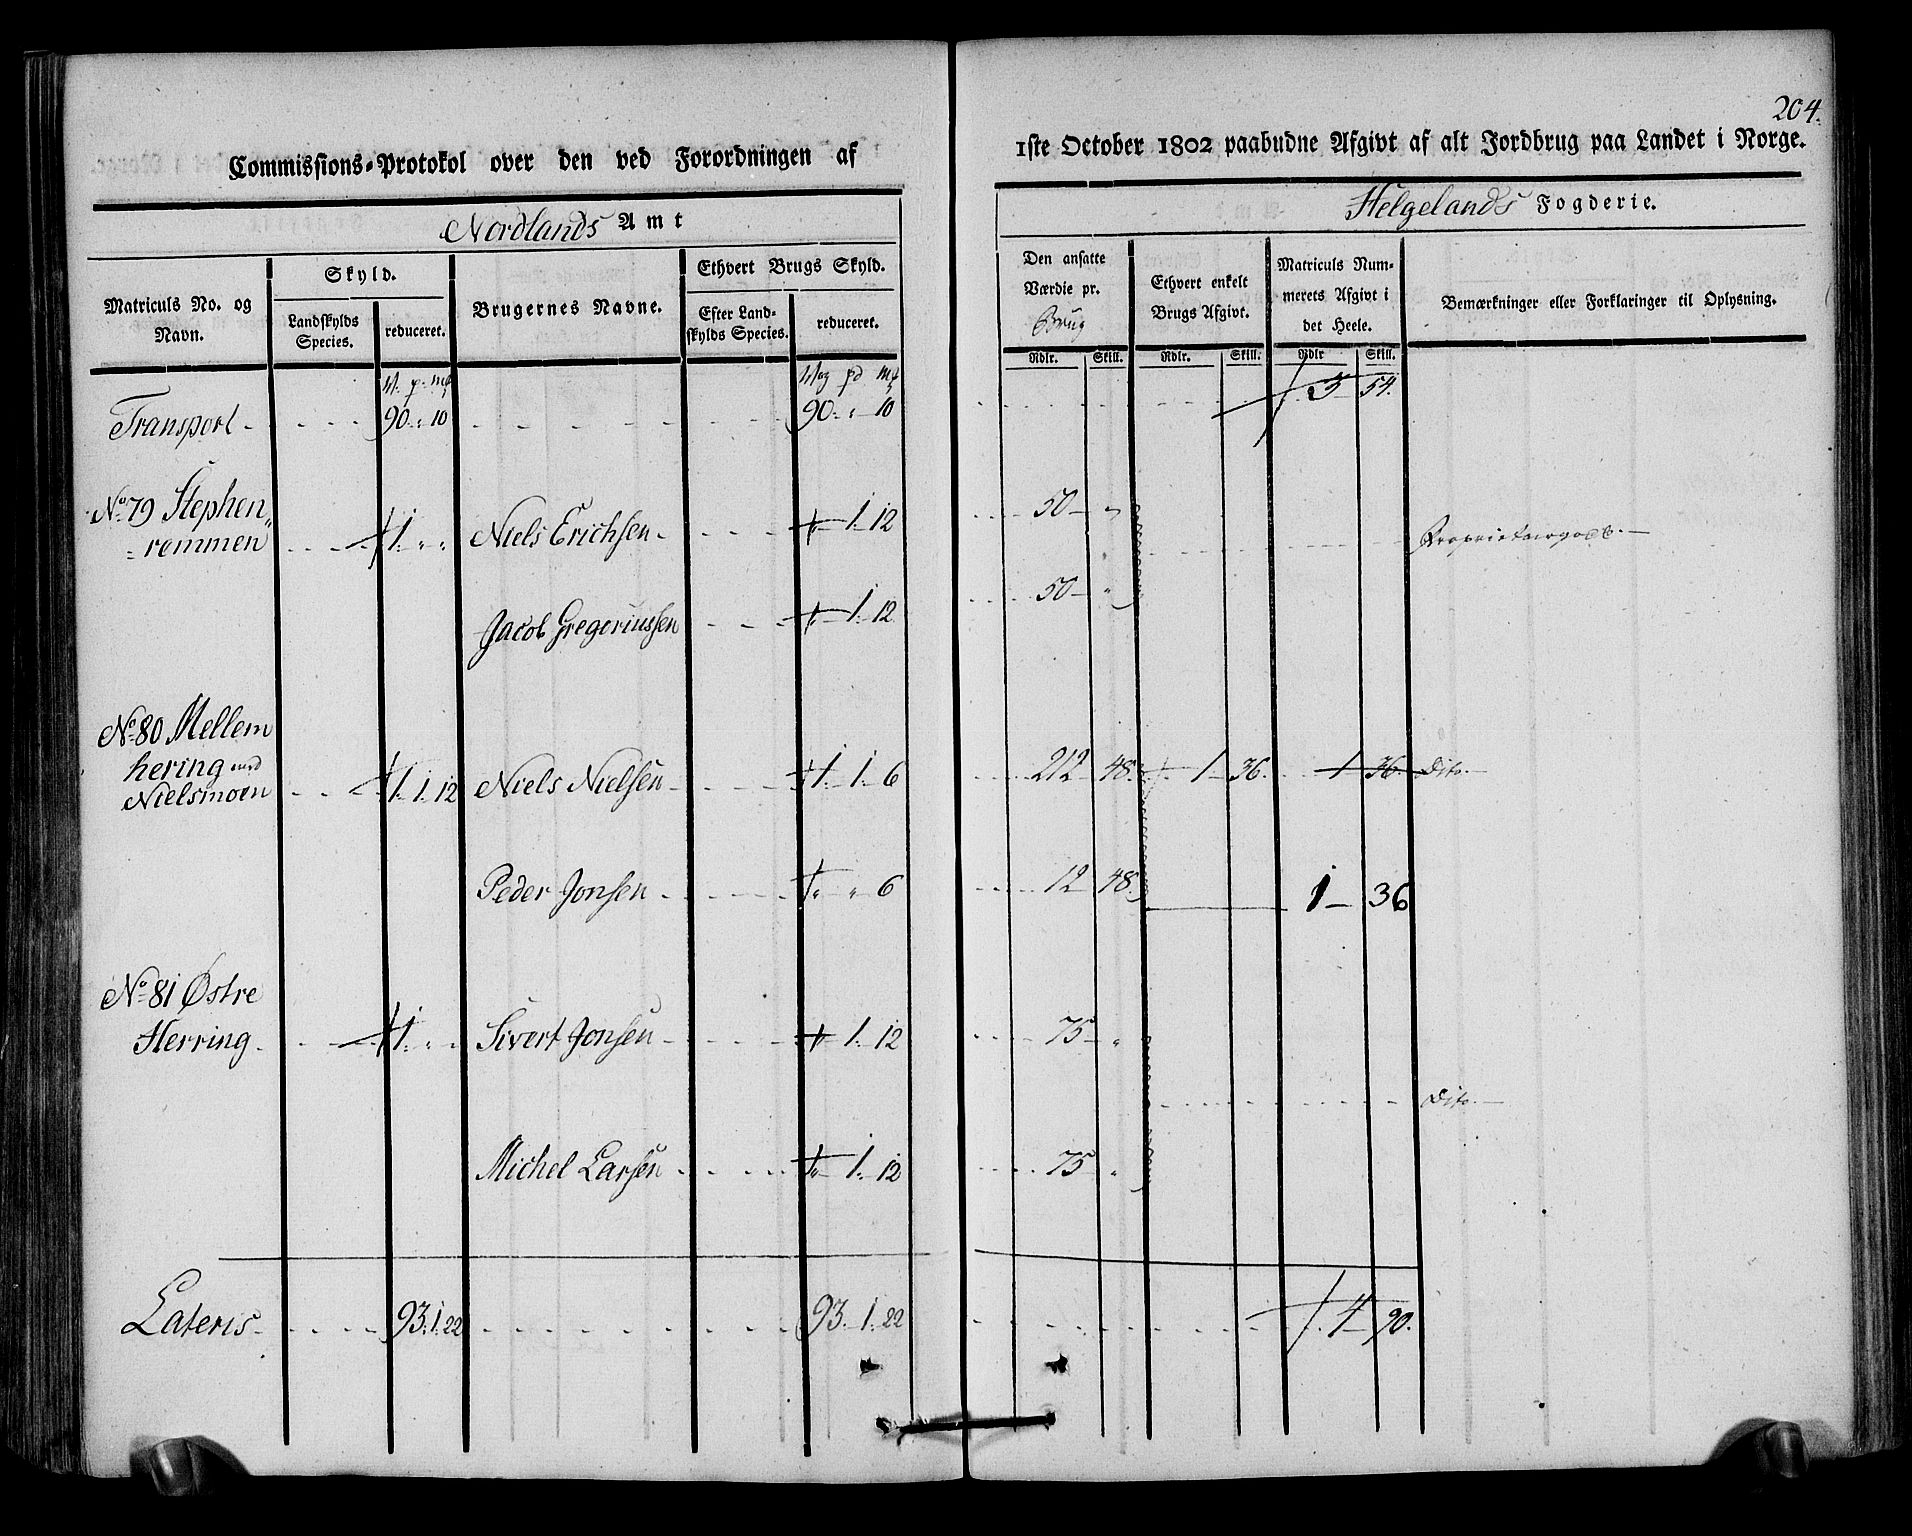 204.
Commissions-Protokol over den ved Forordningen af
1ste October 1802 paabudne Afgivt af alt Jordbrug paa Landet i Norge.
Nordlands Amt
Helgelands Fogderie.
Matriculs No. og Navn.
Skyld.
Landskylds Species.
reduceret.
Brugernes Navne.
Ethvert Brugs Skyld.
Efter Landskylds Species.
reduceret.
Den ansatte Værdie pr. Brug
Ethvert enkelt Brugs Afgivt.
Matriculs Nummerets Afgivt i det Heele.
Bemærkninger eller Forklaringer til Oplysning.
Rdlr. Skill. Rdlr. Skill. Rdlr Skill.
Transport 90 „ 10 90 „ 10 3 54.
No. 79 Stephen„
=remmen 1 „ „ Niels Erichsen 1 12 50 „ Proprietærgods.
Jacob Gregeriussen 1 12 50 „
No. 80 Mellem
hering med
Nielsmoen 1. 1. 12 Niels Nielsen 1. 1. 6 212 48. 1 36. 1 36. Dito.
Peder Jonsen „ „ 6 12 48. 1 36
No. 81 Østre
Herring 1. „ Sivert Jonsen 1. 12 75 „
Dito.
Michel Larsen 1. 12 75 „
Lateris 93. 1. 22 93. 1. 22 4 90.